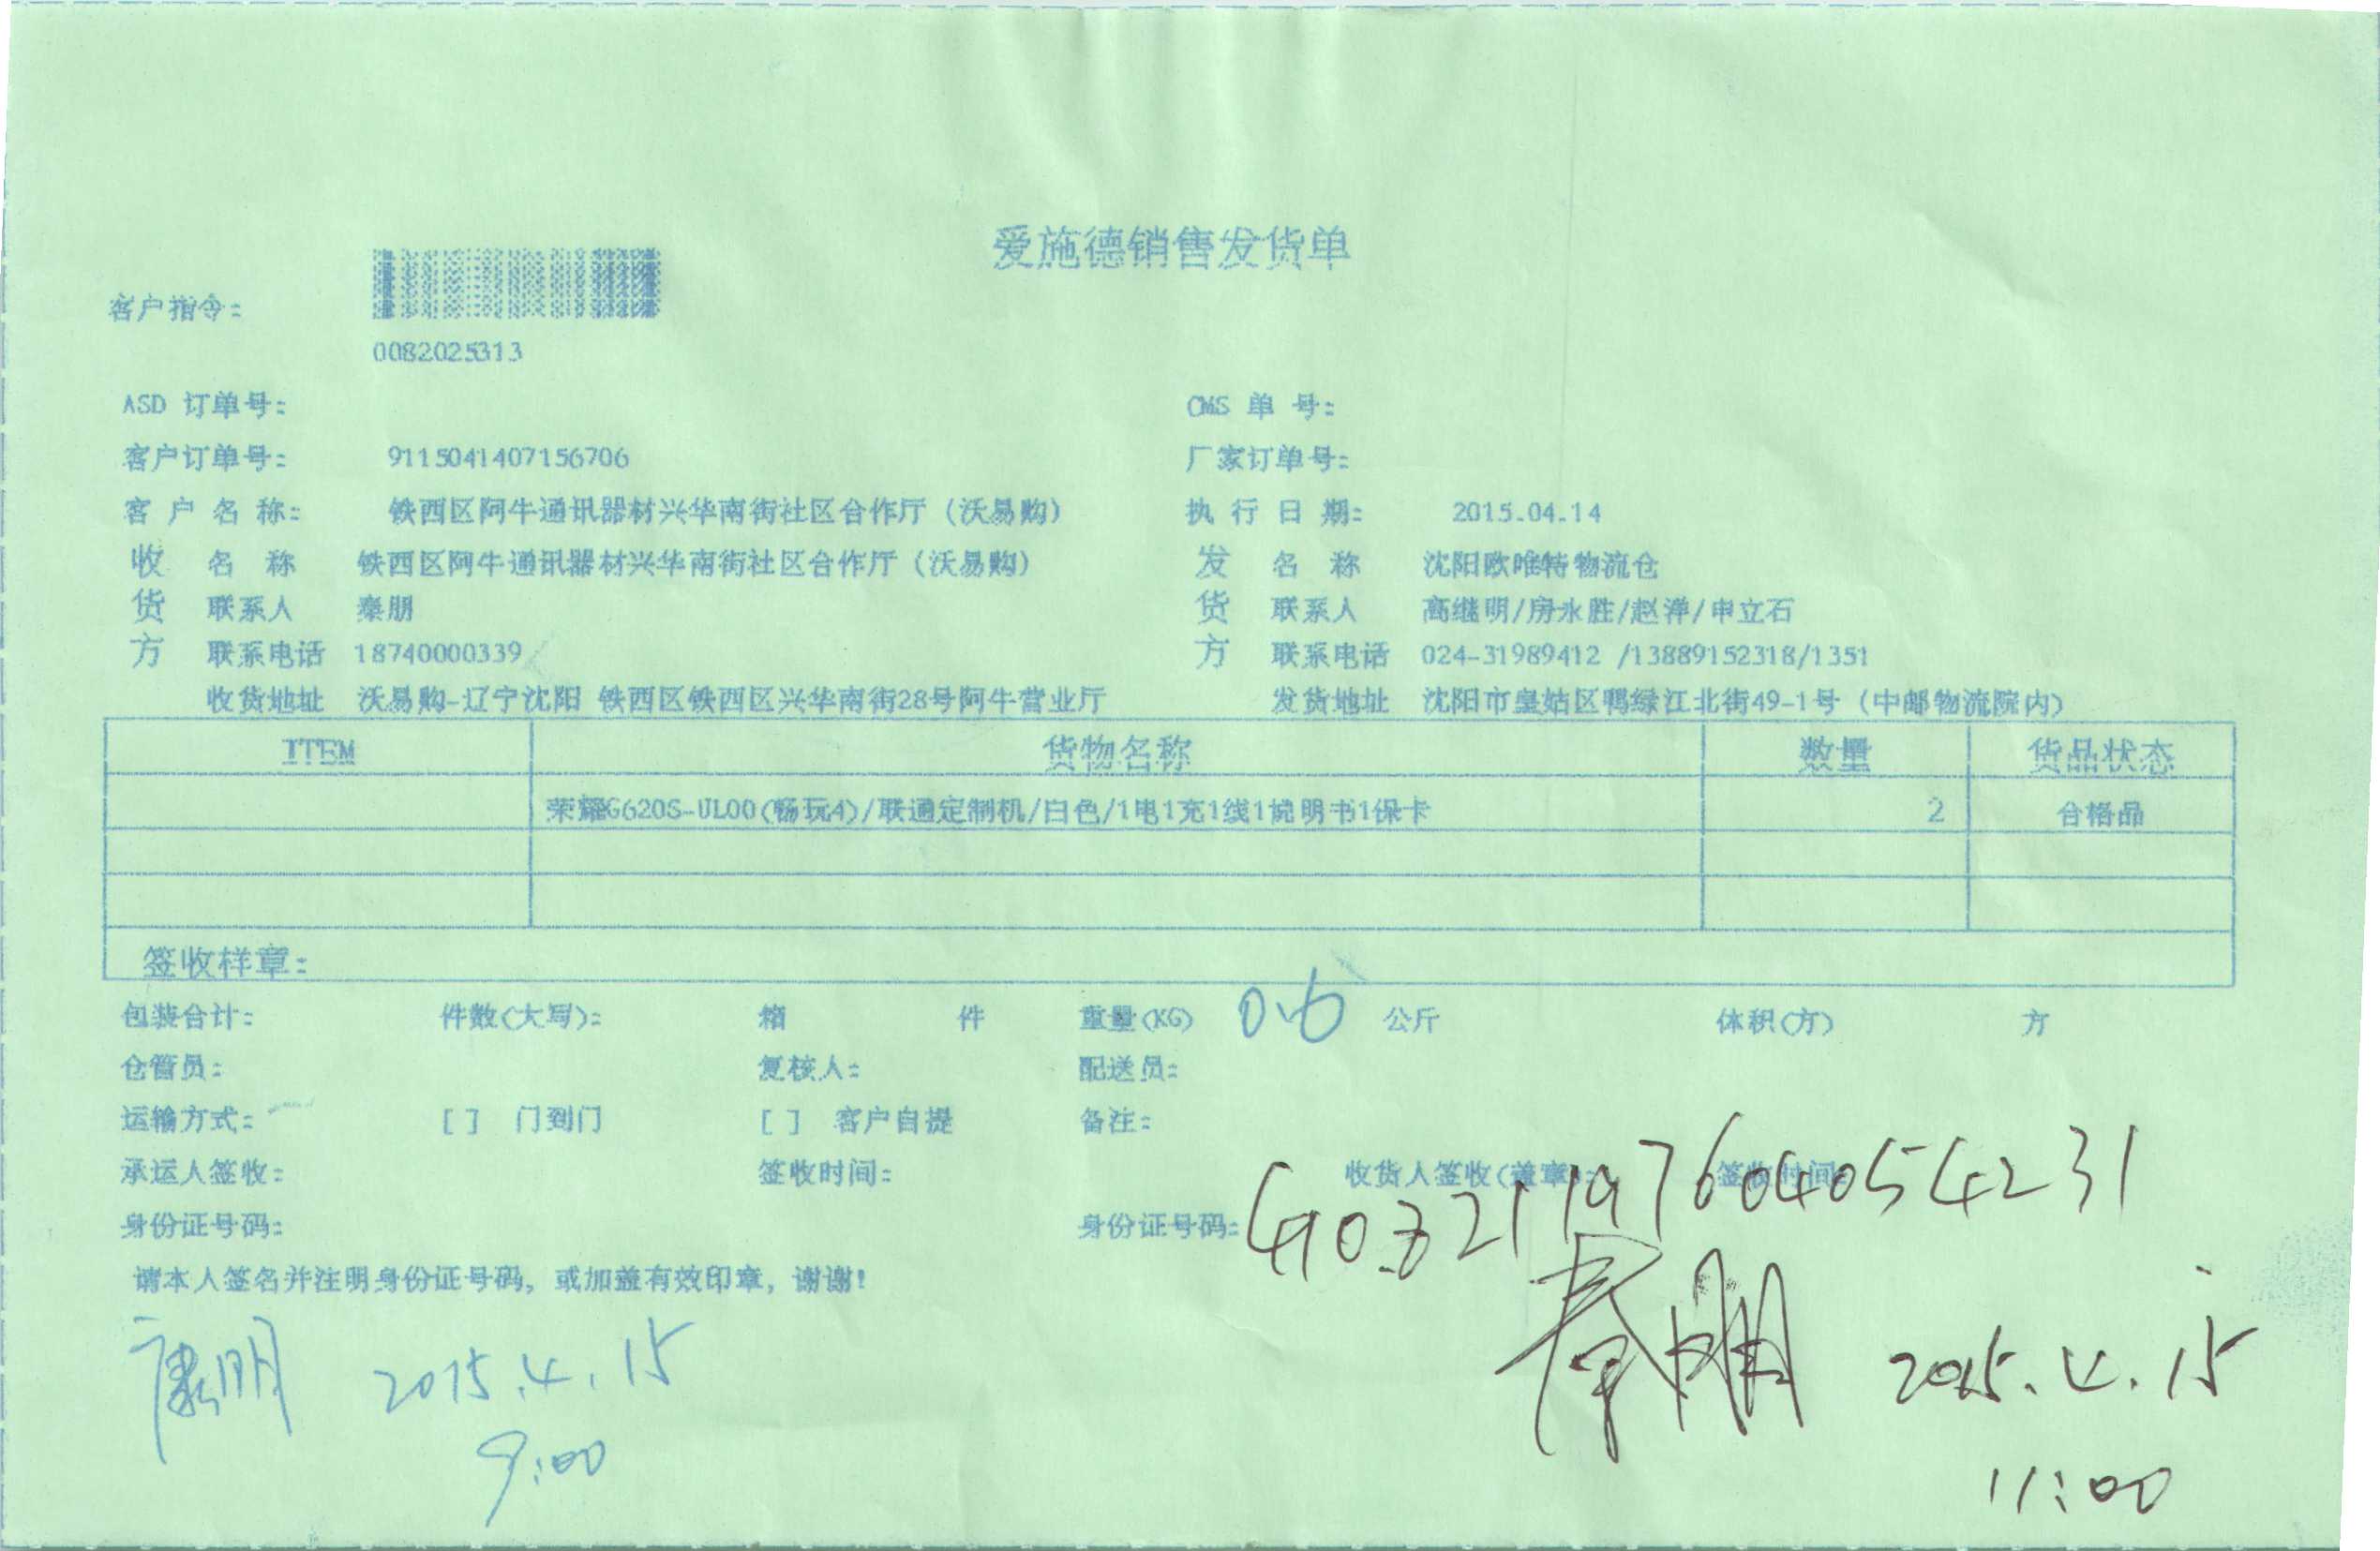 爱施德销售发货单
客户指令:
0082025313
ASD 订单号: CMS 单 号:
客户订单号: 9115041407156706 厂家订单号:
客 户 名 称: 铁西区阿牛通讯器材兴华南街社区合作厅（沃易购） 执 行 日 期: 2015.04.14
收 名 称 铁西区阿牛通讯器材兴华南街社区合作厅（沃易购） 发 名 称 沈阳欧唯特物流仓
货 联系人 秦朋 货 联系人 高继明/房永胜/赵洋/申立石
方 联系电话 18740000339 方 联系电话 024-31989412 /13889152318/1351
收货地址 沃易购-辽宁沈阳 铁西区铁西区兴华南街28号阿牛营业厅 发货地址 沈阳市皇姑区鸭绿江北街49-1号（中邮物流院内）
ITEM 货物名称 数量 货品状态
荣耀G620S-UL00(畅玩4)/联通定制机/白色/1电1充1线1说明书1保卡 2 合格品
签收样章:
包装合计: 件数(大写): 箱 件 重量(KG) 0.6 公斤 体积(方) 方
仓管员: 复核人: 配送员:
运输方式: [ ] 门到门 [ ] 客户自提 备注:
承运人签收: 签收时间: 收货人签收(盖章): 签收时间:
身份证号码: 身份证号码:
请本人签名并注明身份证号码，或加盖有效印章，谢谢!
康明 2015.4.15 秦朋 2015.4.15
9:00 11:00